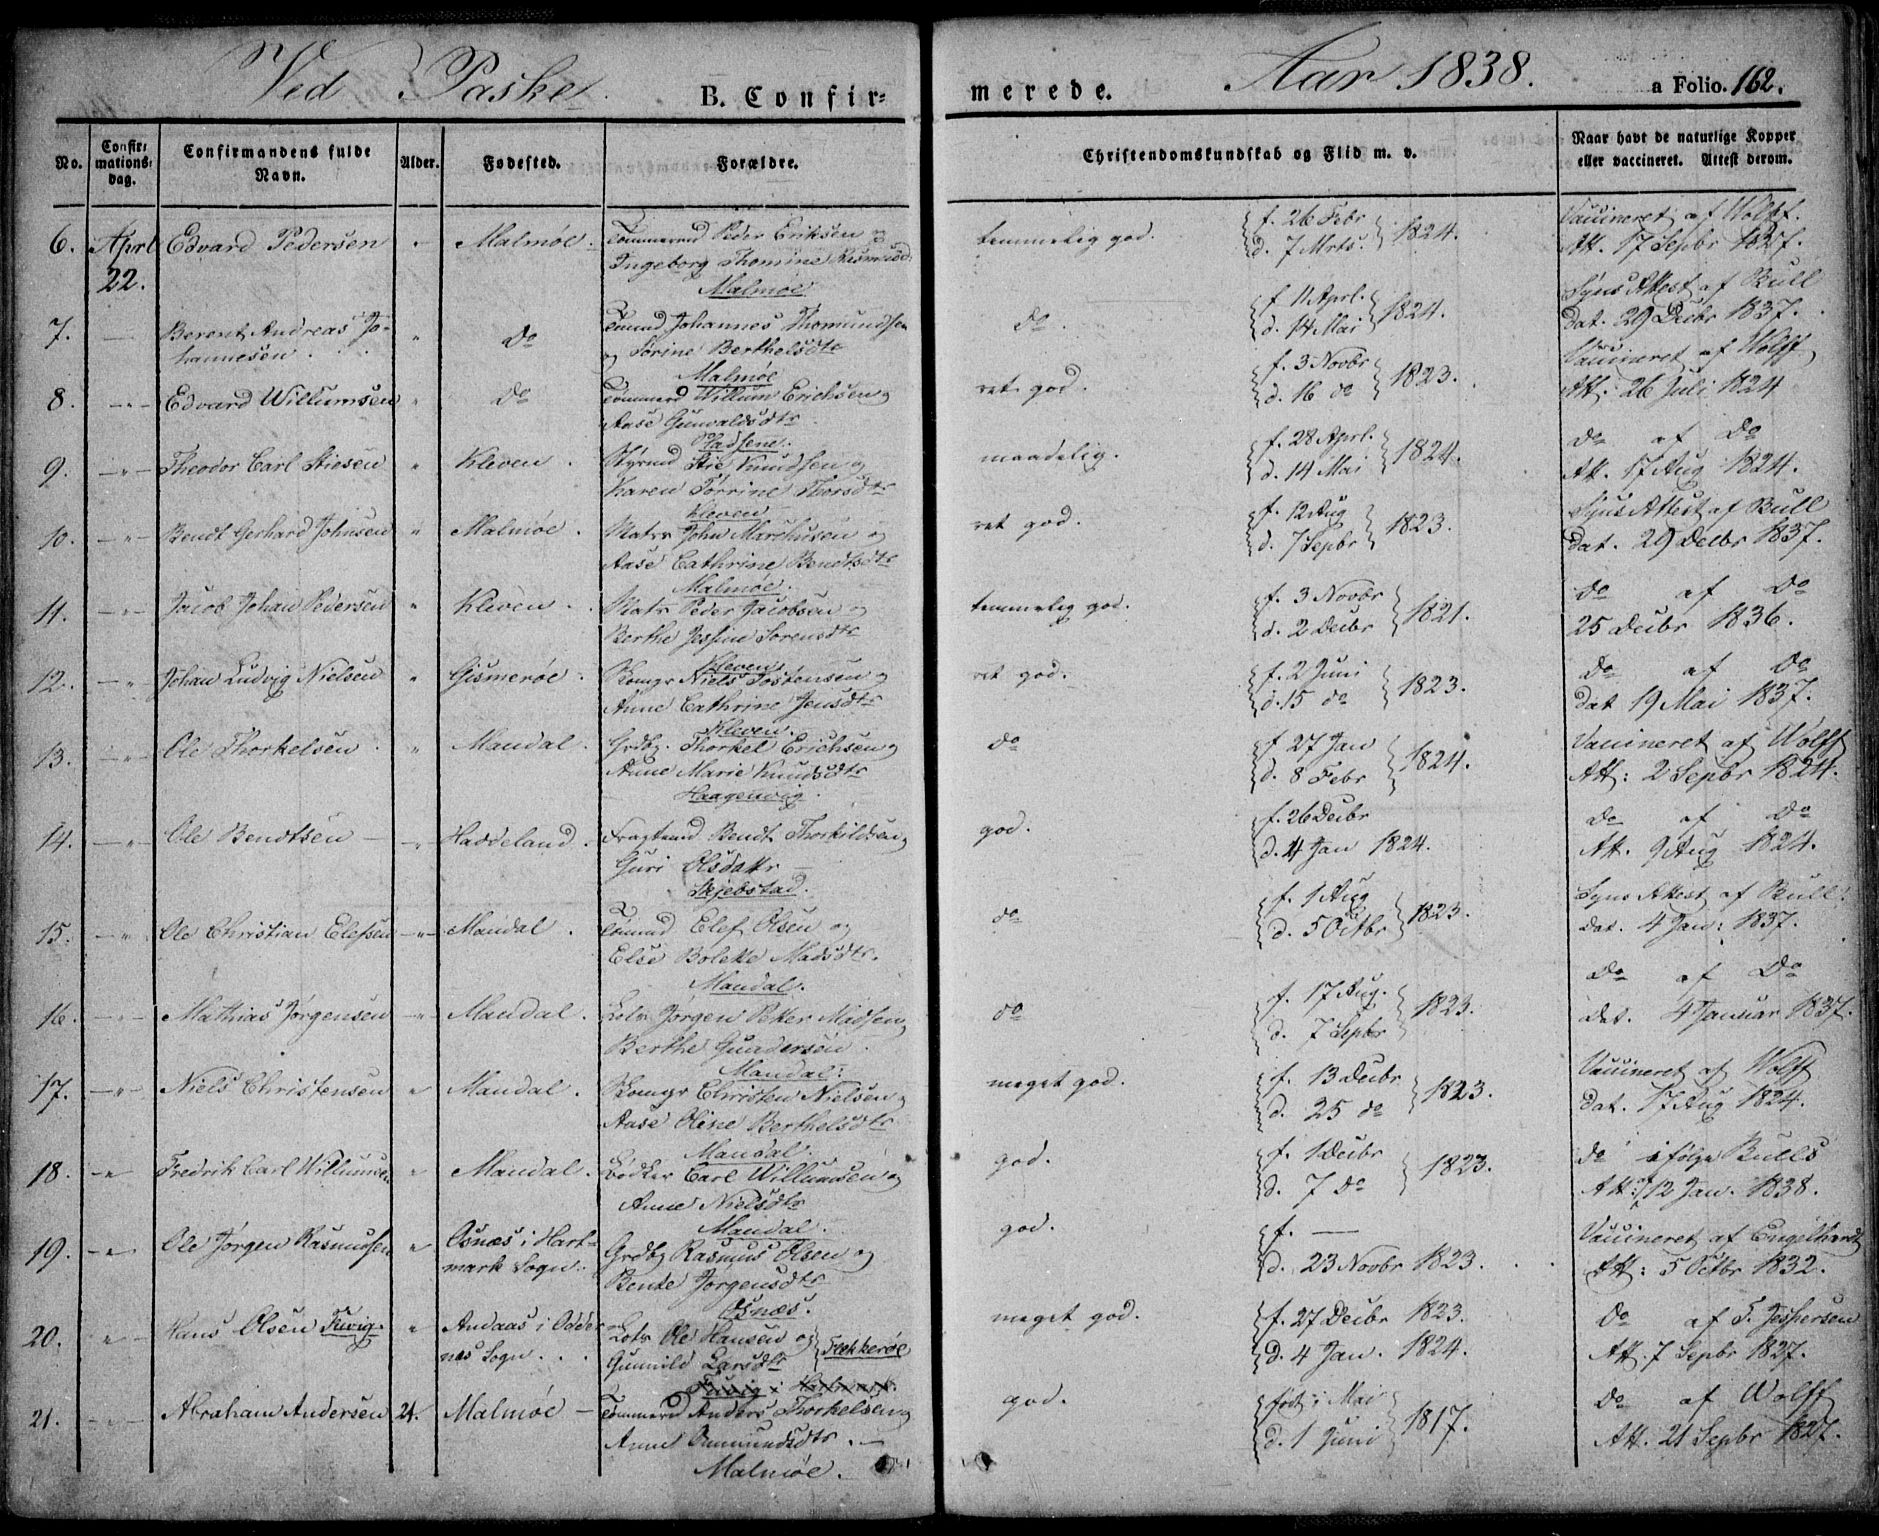 Ved Paske.
B. Confirmerede.
Aar 1838.
a Folio. 162.
No. | Confirmationsdag. | Confirmandens fulde Navn. | Alder. | Fødested. | Forældre. | Christendomskundskab og Flid m. v. | Naar havt de naturlige Kopper eller vaccineret. Attest derom.
6. April Edvard Pedersen " Malmøe. Tømmermd Peder Eriksen og temmelig god. f. 26 Febr 1824. Vaccineret af Wolff.
22. Ingeborg Thomine d. 7 Mrts. Att. 17 Sepbr 1827.
Malmøe Syns Attest af Bull
7. — Berent Andreas Jo- " do Johannes Thomundsen do. f. 11 Aprl. 1824. dat. 29 Decbr 1837.
hannesen og Sørine Berthelsdtr d. 14 Mai
Malmøe Vaccineret af Wolff
8. -"- Edvard Willumsen " do Tømmermd Willum Erichsen og ret god. f. 3 Novbr 1823. Att: 26 Juli 1824
Aase Gunvaldsdtr d. 16 do
do af do
9. -"- Theodor Carl Stiesen " Kleven. Styrmd Stie Knudsen og maadelig. f. 28 Aprl. 1824. Att. 17 Aug 1824.
Karen Torrine Thorsdtr d. 14 Mai
Kleven Syns Attest af Bull
10. -"- Bendt Gerhard Johnsen " Malmøe. Matrs John Marchusen og ret god. f. 12 Aug 1823. dat. 29 Decbr 1837.
Aase Cathrine Bendtsdtr d. 7 Sepbr
Malmøe. do af do
11. -"- Jacob Johan Pedersen " Kleven. Matrs Peder Jacobsen og temmelig god. f. 3 Novbr 1821. 25 Decbr 1836.
Berthe Jessine Sørensdtr d. 2 Decbr
Kleven do af do
12. -"- Johan Ludvig Nielsen " Gismerøe. Niels Tostensen og ret god. f. 2 Juni 1823. dat 19 Mai 1837.
Anne Cathrine Jensdtr d. 15 do
Kleven. Vaccineret af Wolff
13. -"- Ole Thorkelsen " Mandal. Grdbr. Thorkel Erichsen og do f. 27 Jan 1824. Att: 2 Sepbr 1824.
Anne Marie Knudsdtr d. 8 Febr
Haagenvig. do af do
14. -"- Ole Bendtsen — " Haddeland. Bendt Thorkildsen og god. f. 26 Decbr Att. 9 Aug 1824.
Guri Olsdattr d. 4 Jan 1824.
Skjebstad. Syns Attest af Bull.
15. -"- Ole Christian Elefsen -"- Mandal. Elef Olsen og do f. 1 Aug 1823. dat. 4 Jan: 1837.
Else Bolette Madsdtr. d. 5 Octbr
Mandal. do af do
16. -"- Mathias Jørgensen -"- Mandal. Lots Jørgen Petter Madsen og do f. 17 Aug. 1823. dat. 4 Januar 1837.
Berthe Gundersen d. 7 Sepbr
Mandal. Vaccineret af Wolff
17. -"- Niels Christensen " Mandal. Christen Nielsen og meget god. f. 13 Decbr 1823. dat. 17 Aug 1824.
Aase Oline Berthelsdtr d. 25 do
Mandal. do ifølge Bulls
18. -"- Fredrik Carl Willumsen " Mandal. Bødker Carl Willumsen og god. f. 1 Decbr 1823. Att: 12 Jan. 1838.
Anne Nielsdtr d. 7 do
Mandal. Vaccineret af Engelhardt
19. -"- Ole Jørgen Rasmussen " Osnæs i Hart- Grdbr Rasmus Olsen og god. f. — Att: 5 Octbr 1832.
mark Sogn. Bente Jørgensdtr d. 23 Novbr 1823.
Osnæs.
20. " Hans Olsen " Andaas i Odder- Lots Ole Hansen og Flekkerøe meget god. f. 27 Decbr 1823. do af T. Jespersen
næs Sogn. . . Gunnild Larsdtr d. 4 Jan. 1824. Att. 7 Sepbr 1827.
21. -"- Abraham Andersen 21. Malmøe — Tømmermd Anders Thorkelsen og god. født i Mai 1817. do af Wolff
Anne d. 1 Juni Att. 21 Sepbr 1827.
Malmøe.